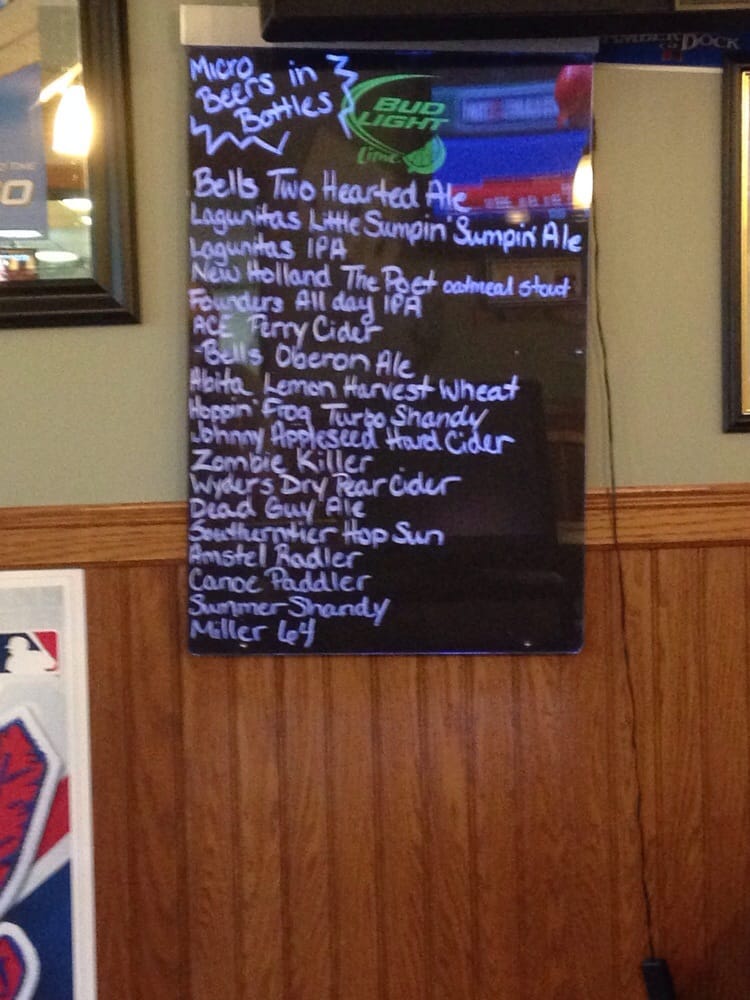 Micro
Beers in
Bottles
BUD
LIGHT
Lime
AMBER DOCK
Bells Two Hearted Ale
Lagunitas Little Sumpin' Sumpin' Ale
Lagunitas IPA
New Holland The Poet oatmeal stout
Founders All day IPA
ACE Perry Cider
-Bells Oberon Ale
Abita Lemon Harvest Wheat
Hoppin' Frog Turbo Shandy
Johnny Appleseed Hard Cider
Zombie Killer
Wyders Dry Pear Cider
Dead Guy Ale
Southerntier Hop Sun
Amstel Radler
Canoe Paddler
Summer Shandy
Miller 64